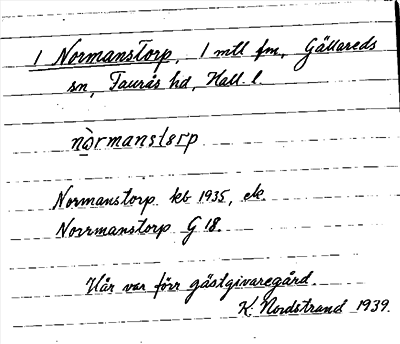 1 Normanstorp, 1 mtl fm, Gällareds
sn, Faurås hd, Hall. l
nòrmanstɔrp
Normanstorp kb 1935, ek.
Norrmanstorp G 18.
Här var förr gästgivaregård.
K. Nordstrand 1939.